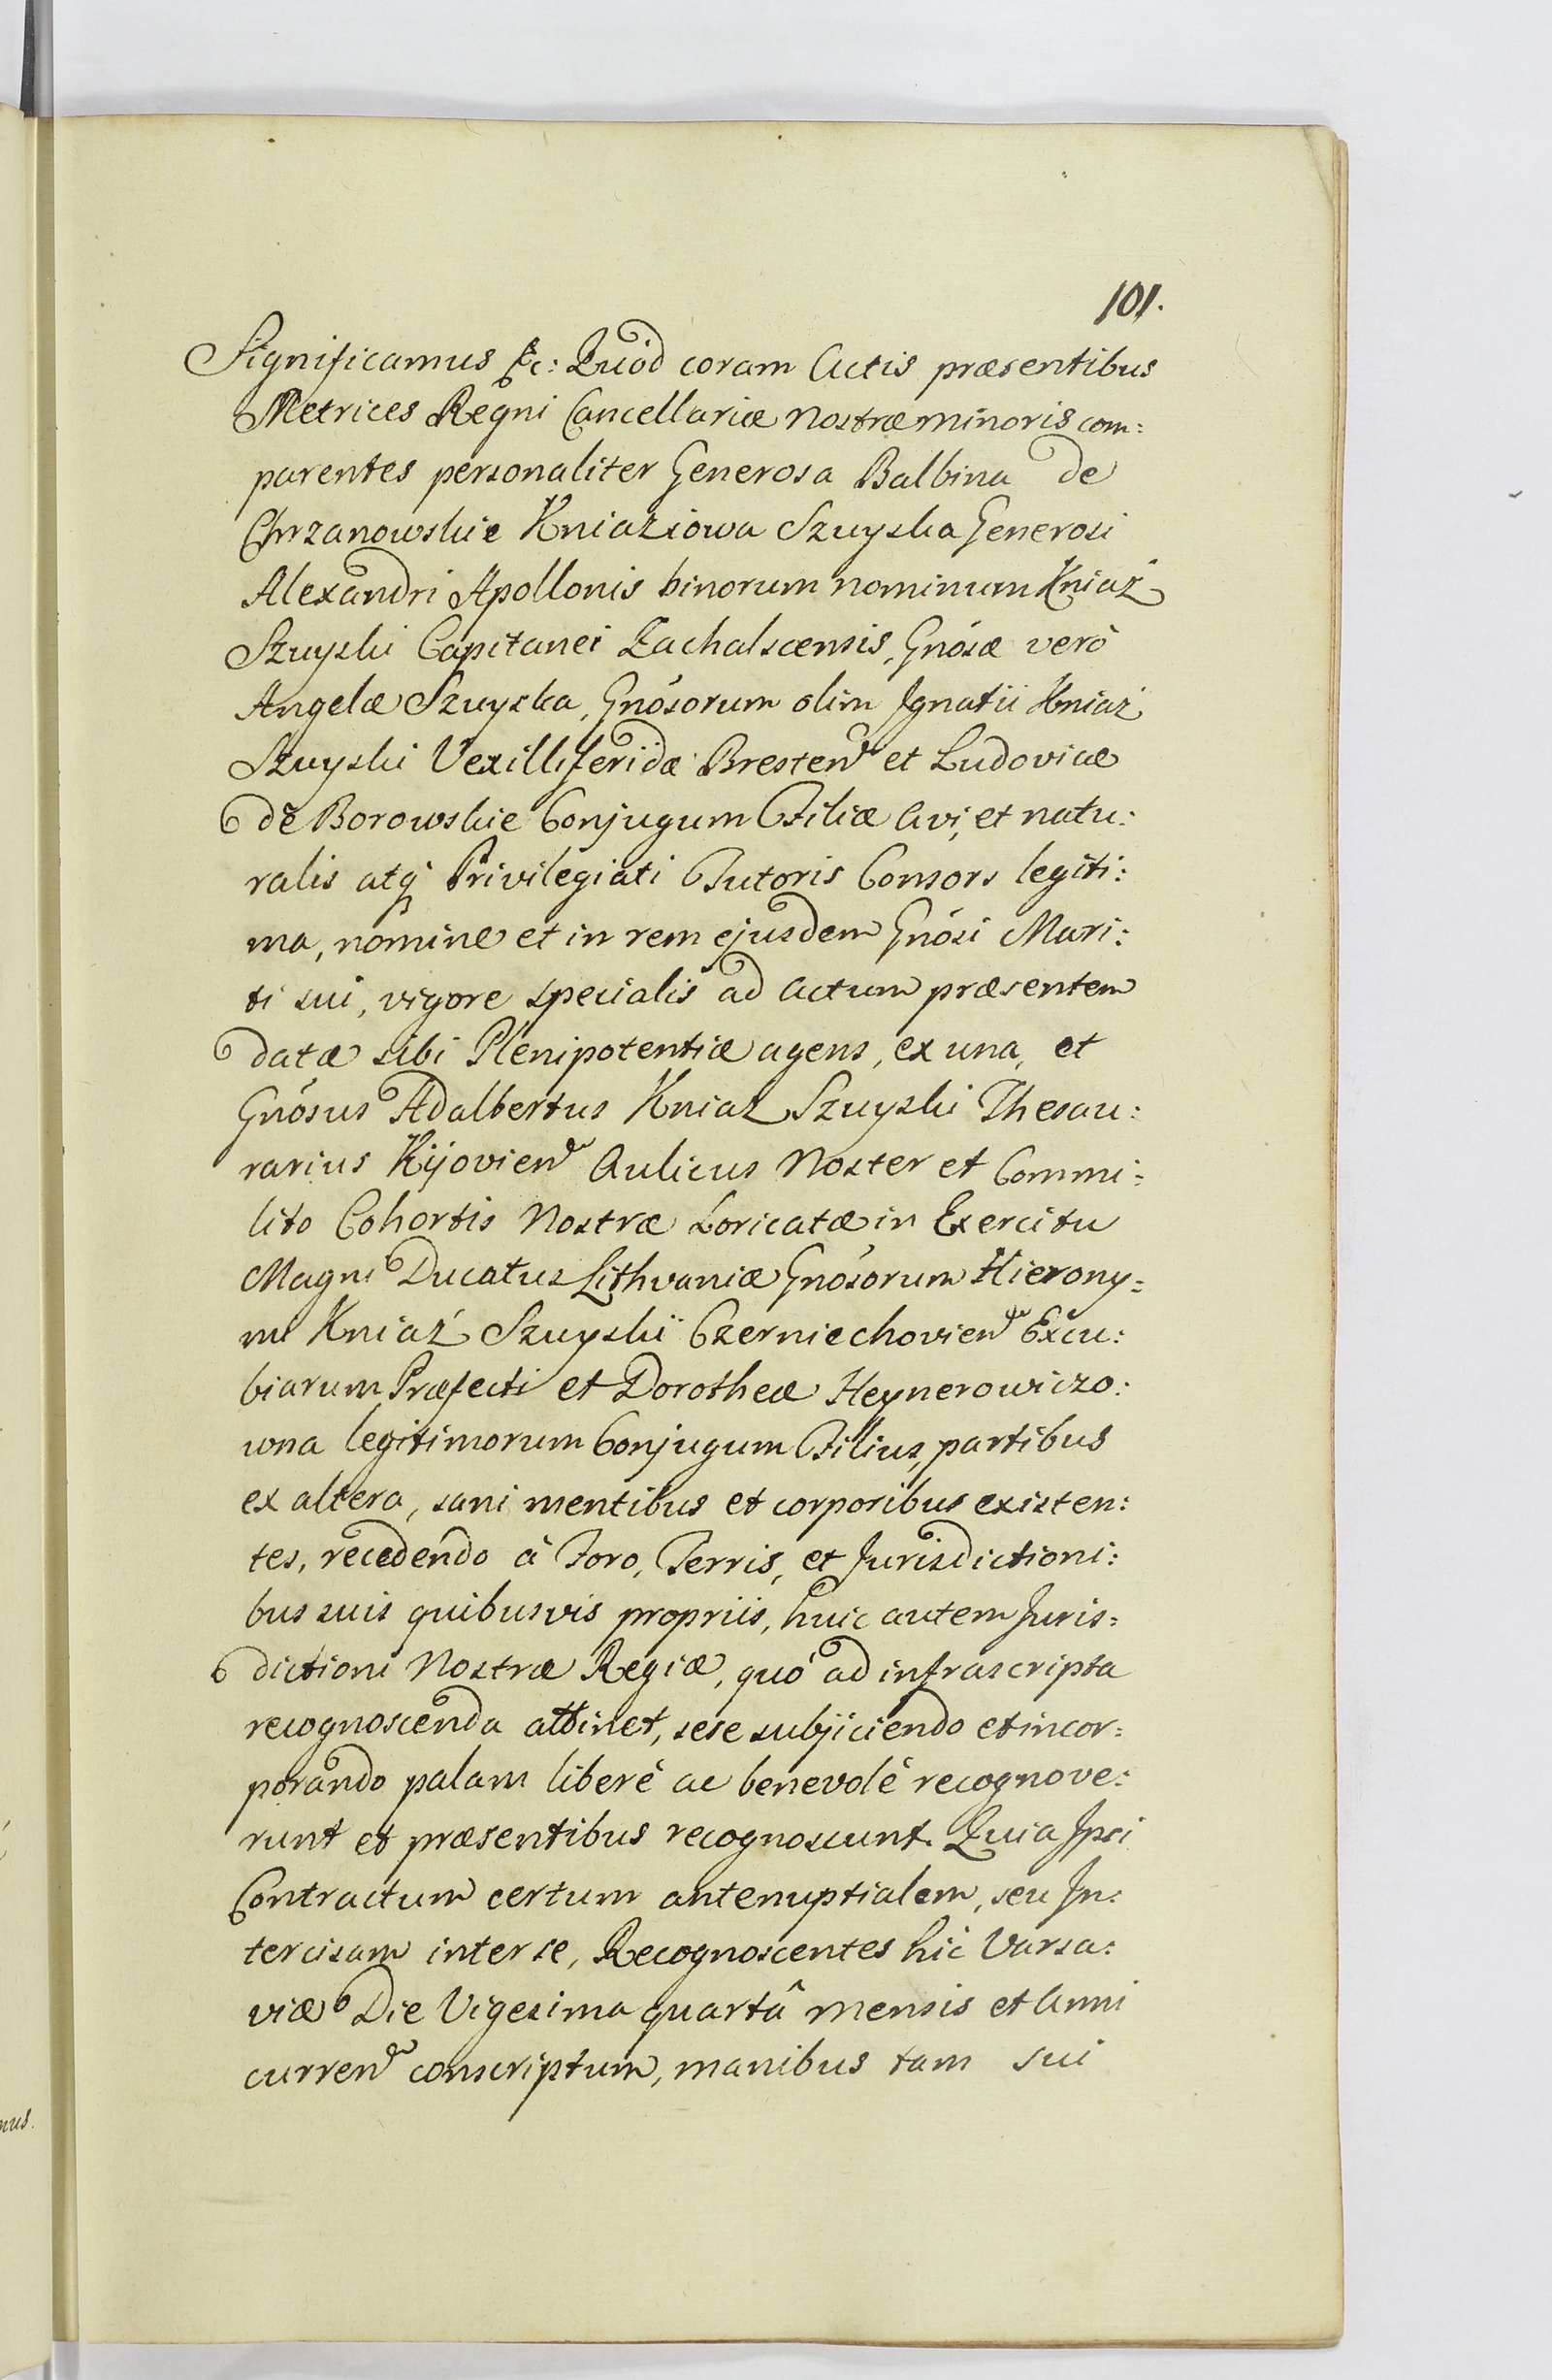 101.
Significamus &c: Quòd coram Actis præsentibus
Metrices Regni Cancellariæ Nostræ minoris com:
parentes personaliter Generosa Balbina de
Chrzanowskie Kniaziowa Szuyska Generosi
Alexandri Apollonis binorum nominum Kniaź
Szuyski Capitanei Zachalscensis, Gnósæ verò
Angelæ Szuyska, Gnósorum olim Ignatii Kniaź
Szuyski Vexilliferidæ Bresten et Ludovicæ
de Borowskie Conjugum Filiæ Avi, et natu:
ralis atq Privilegiati Tutoris Consors legiti:
ma, nomine et in rem ejusdem Gnósi Mari:
ti sui, vigore specialis ad Actum præsentem
datæ sibi Plenipotentiæ agens, ex una, et
Gnósus Adalbertus Kniaź Szuyski Thesau:
rarius Kijovien Aulicus Noster et Commi:
lito Cohortis Nostræ Loricatæ in Exercitu
Magni Ducatus Lithvaniæ Gnósorum Hierony:
mi Kniaź Szuyski Czerniechovien Excu:
biarum Præfecti et Dorotheæ Heynerowiczo:
wna legitimorum Conjugum Filius, partibus
ex altera, sani mentibus et corporibus existen:
tes, recedendo à Foro, Terris, et Jurisdictioni:
bus suis quibusvis propriis, huic autem Juris:
dictioni Nostræ Regiæ, quó ad infrascripta
recognoscenda attinet, sese subjiciendo et incor:
porando palam liberè ac benevolè recognove:
runt et præsentibus recognoscunt. Quia Ipsi
Contractum certum antenuptialem, seu In:
tercisam inter se, Recognoscentes hic Varsa:
viæ Die Vigesima quartâ mensis et Anni
curren conscriptum, manibus tam sui